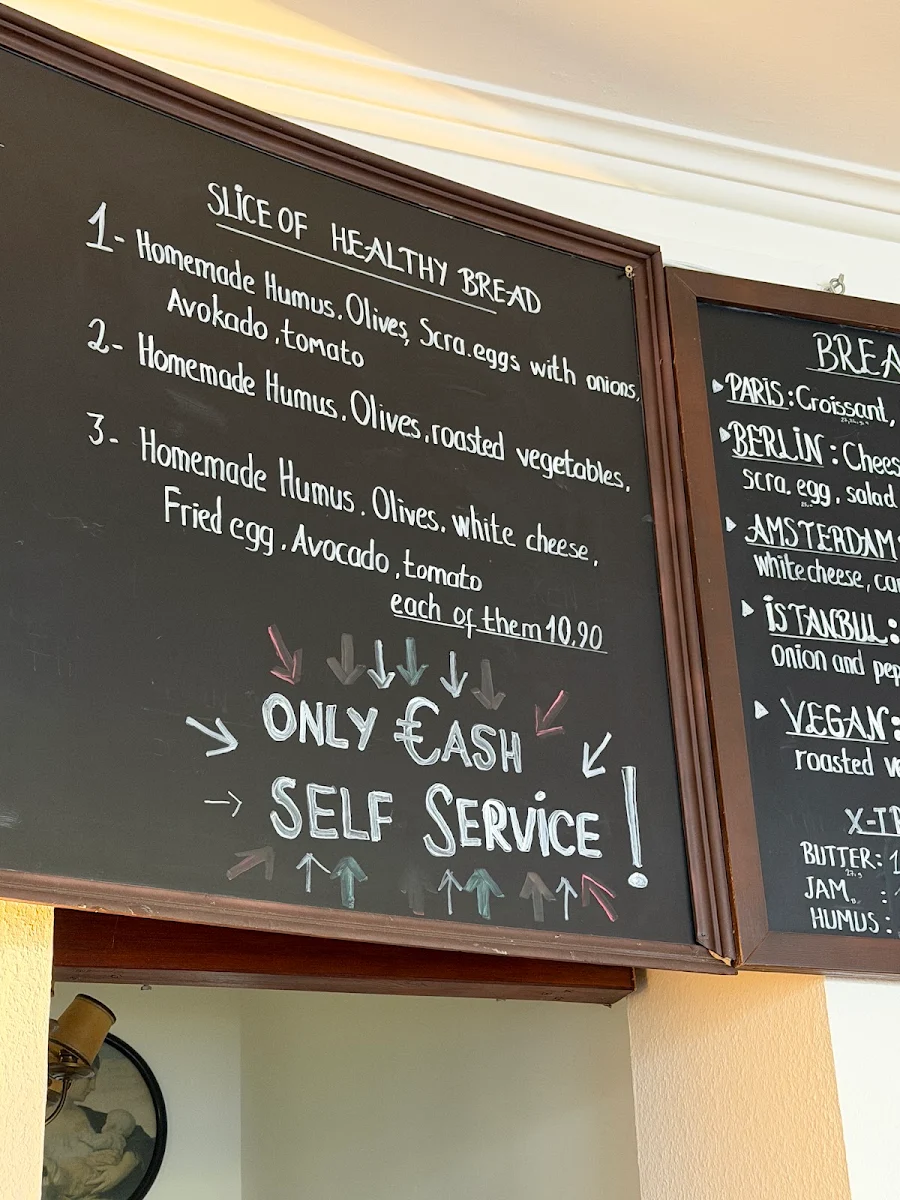 SLICE OF HEALTHY BREAD
1- Homemade Humus. Olives, Scra.eggs with onions,
Avokado, tomato
2- Homemade Humus. Olives. roasted vegetables.
3- Homemade Humus. Olives. white cheese,
Fried egg. Avocado, tomato
each of them 10,90
ONLY €ASH
SELF SERViCE !
BREA
PARiS: Croissant,
BERLiN: Chees
scra. egg, salad
AMSTERDAM
white cheese, ca
iSTANBUL:
Onion and pep
VEGAN:
roasted ve
X-TR
BUTTER: 1
JAM. :
HUMUS: